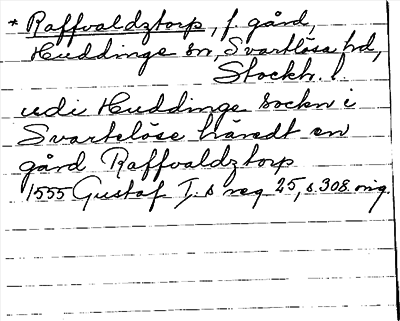 * Raffvaldztorp, f. gård,
Huddinge sn, Svartlösa hd,
Stockh. l.
udi Huddinge sockn i
Svartelöse häredt en
gård Raffvaldztorp
1555 Gustaf I.s reg 25, s. 308 orig.